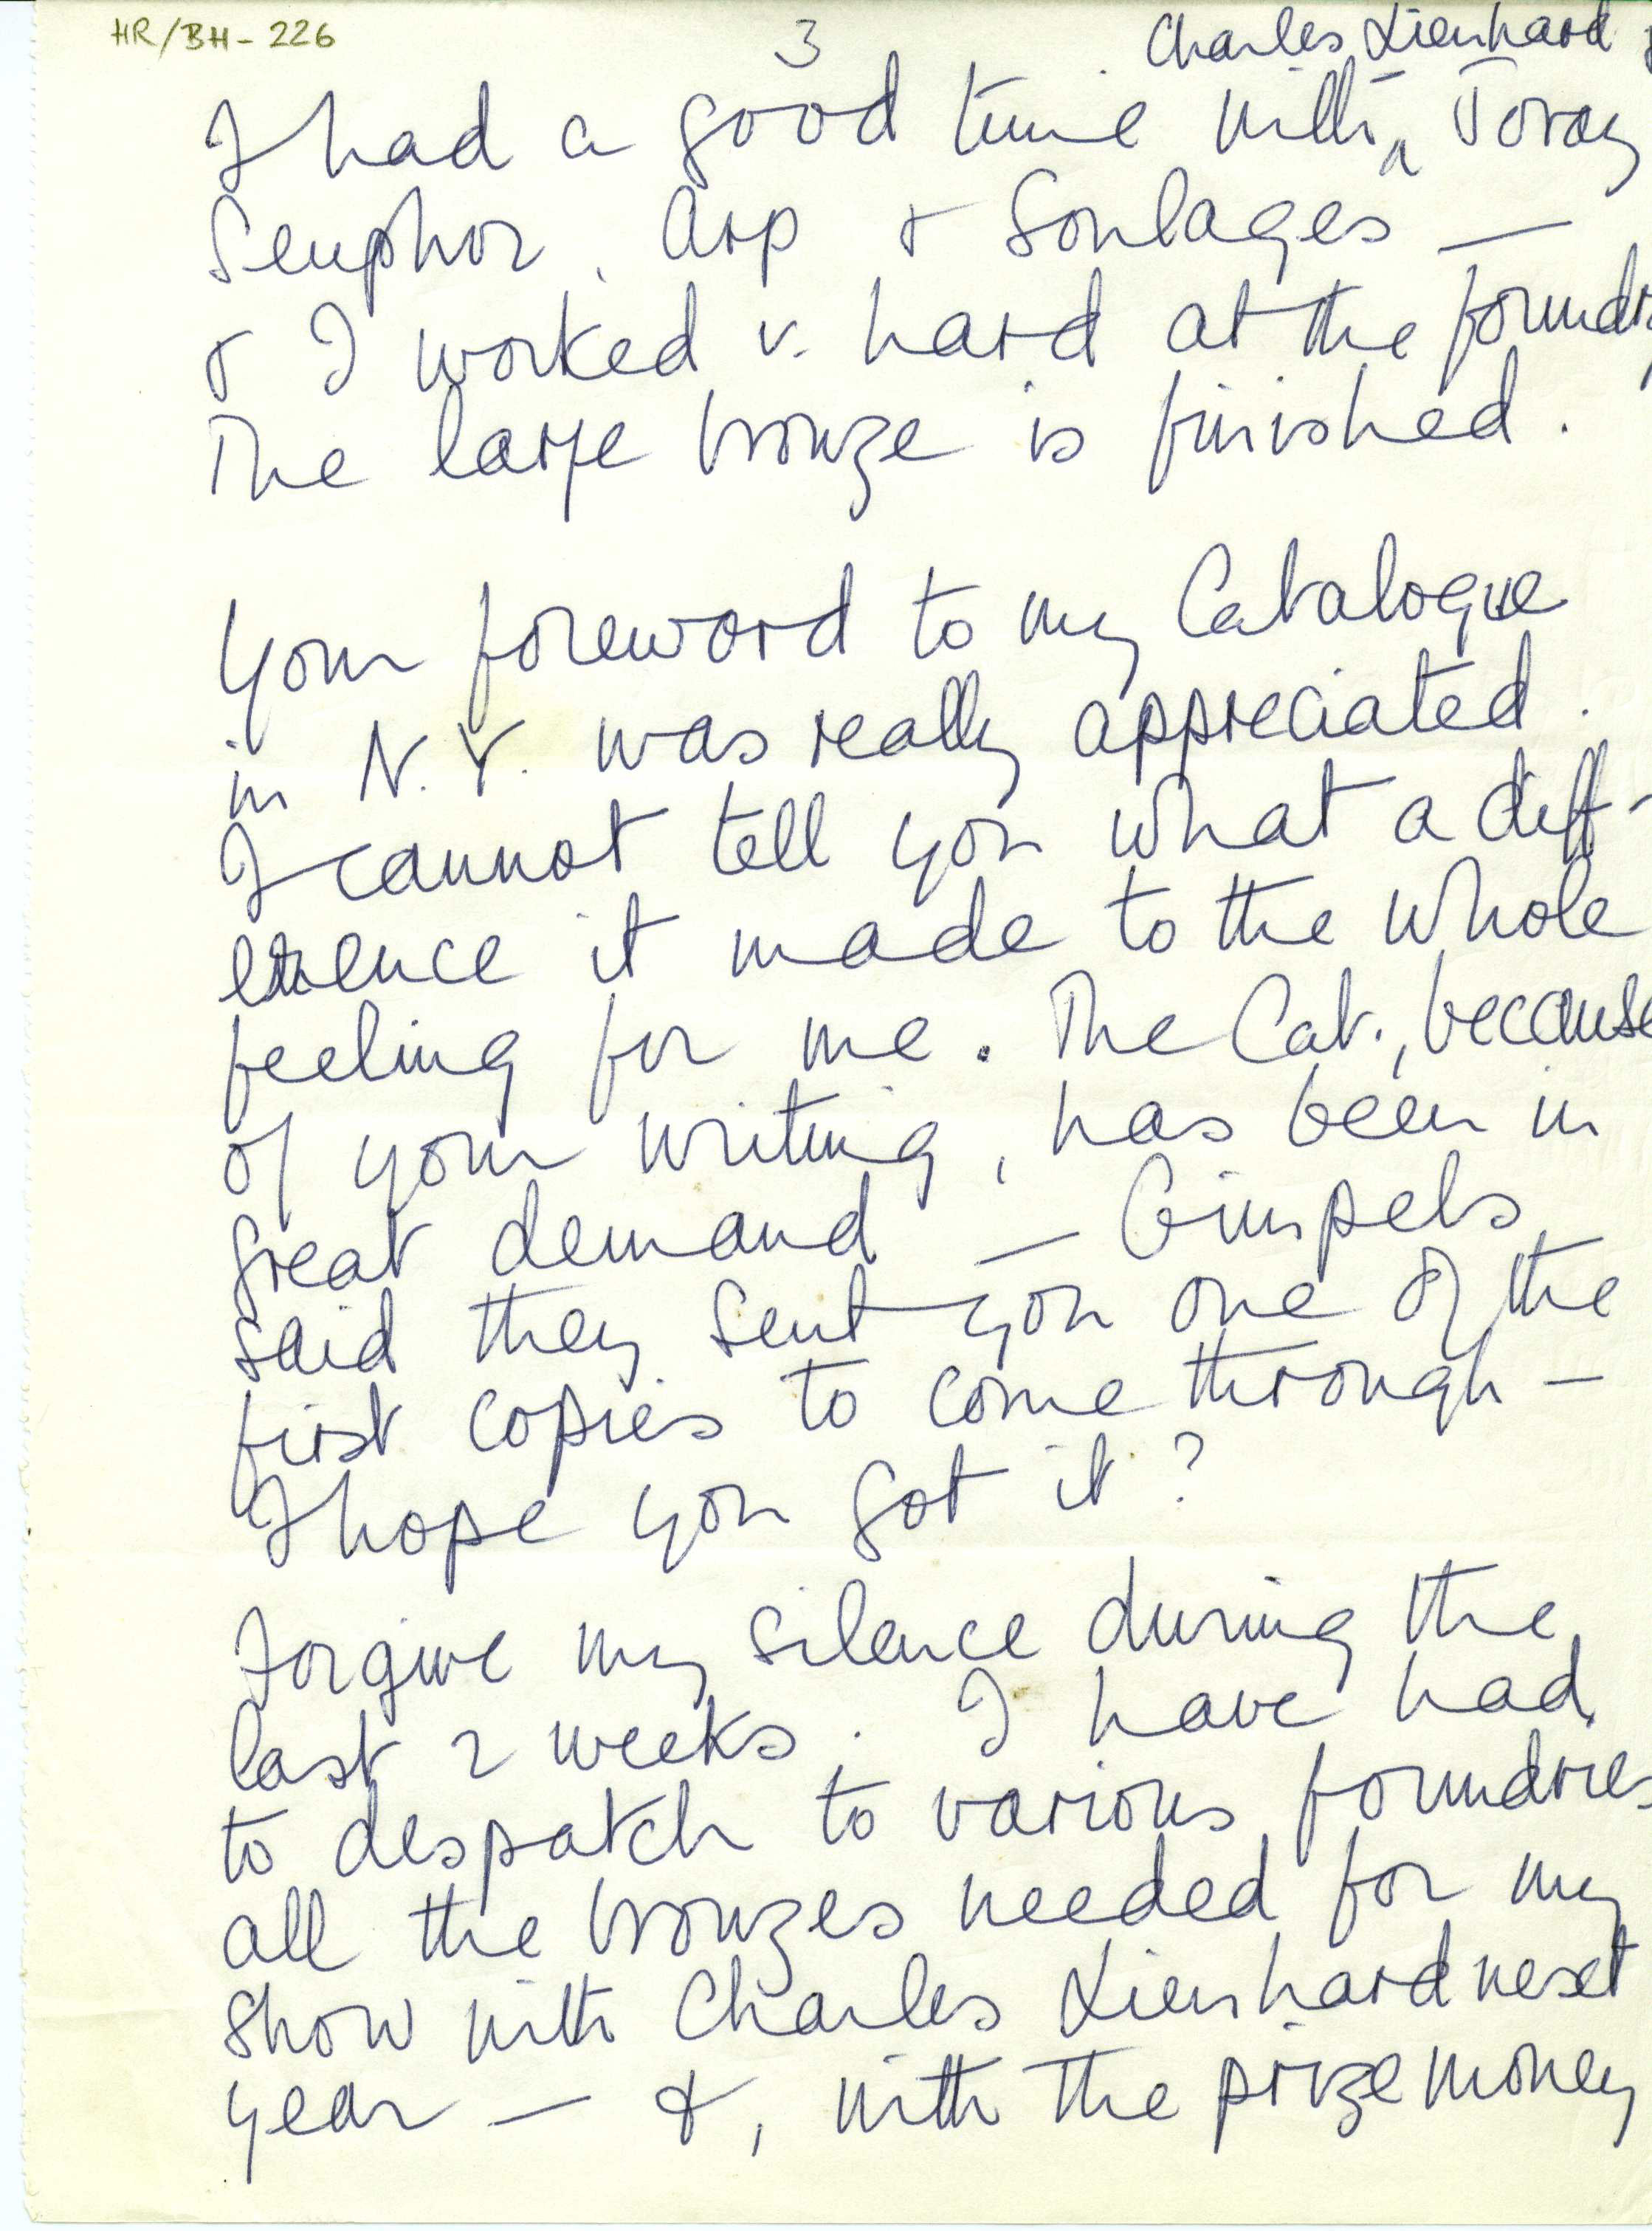 HR/BH-226
3
Charles Lienhard
I had a good time with ‸ Toray
Seuphor, Arp & Soulages —
& I worked v. hard at the foundry
The large bronze is finished.
Your foreword to my Catalogue
in N.Y. was really appreciated.
I cannot tell you what a diff-
erence it made to the whole
feeling for me. The Cat., because
of your writing, has been in
great demand — Gimpels
said they sent you one of the
first copies to come through —
I hope you got it?
Forgive my silence during the
last 2 weeks. I have had
to despatch to various foundries
all the bronzes needed for my
show with Charles Lienhard next
year — &, with the prize money